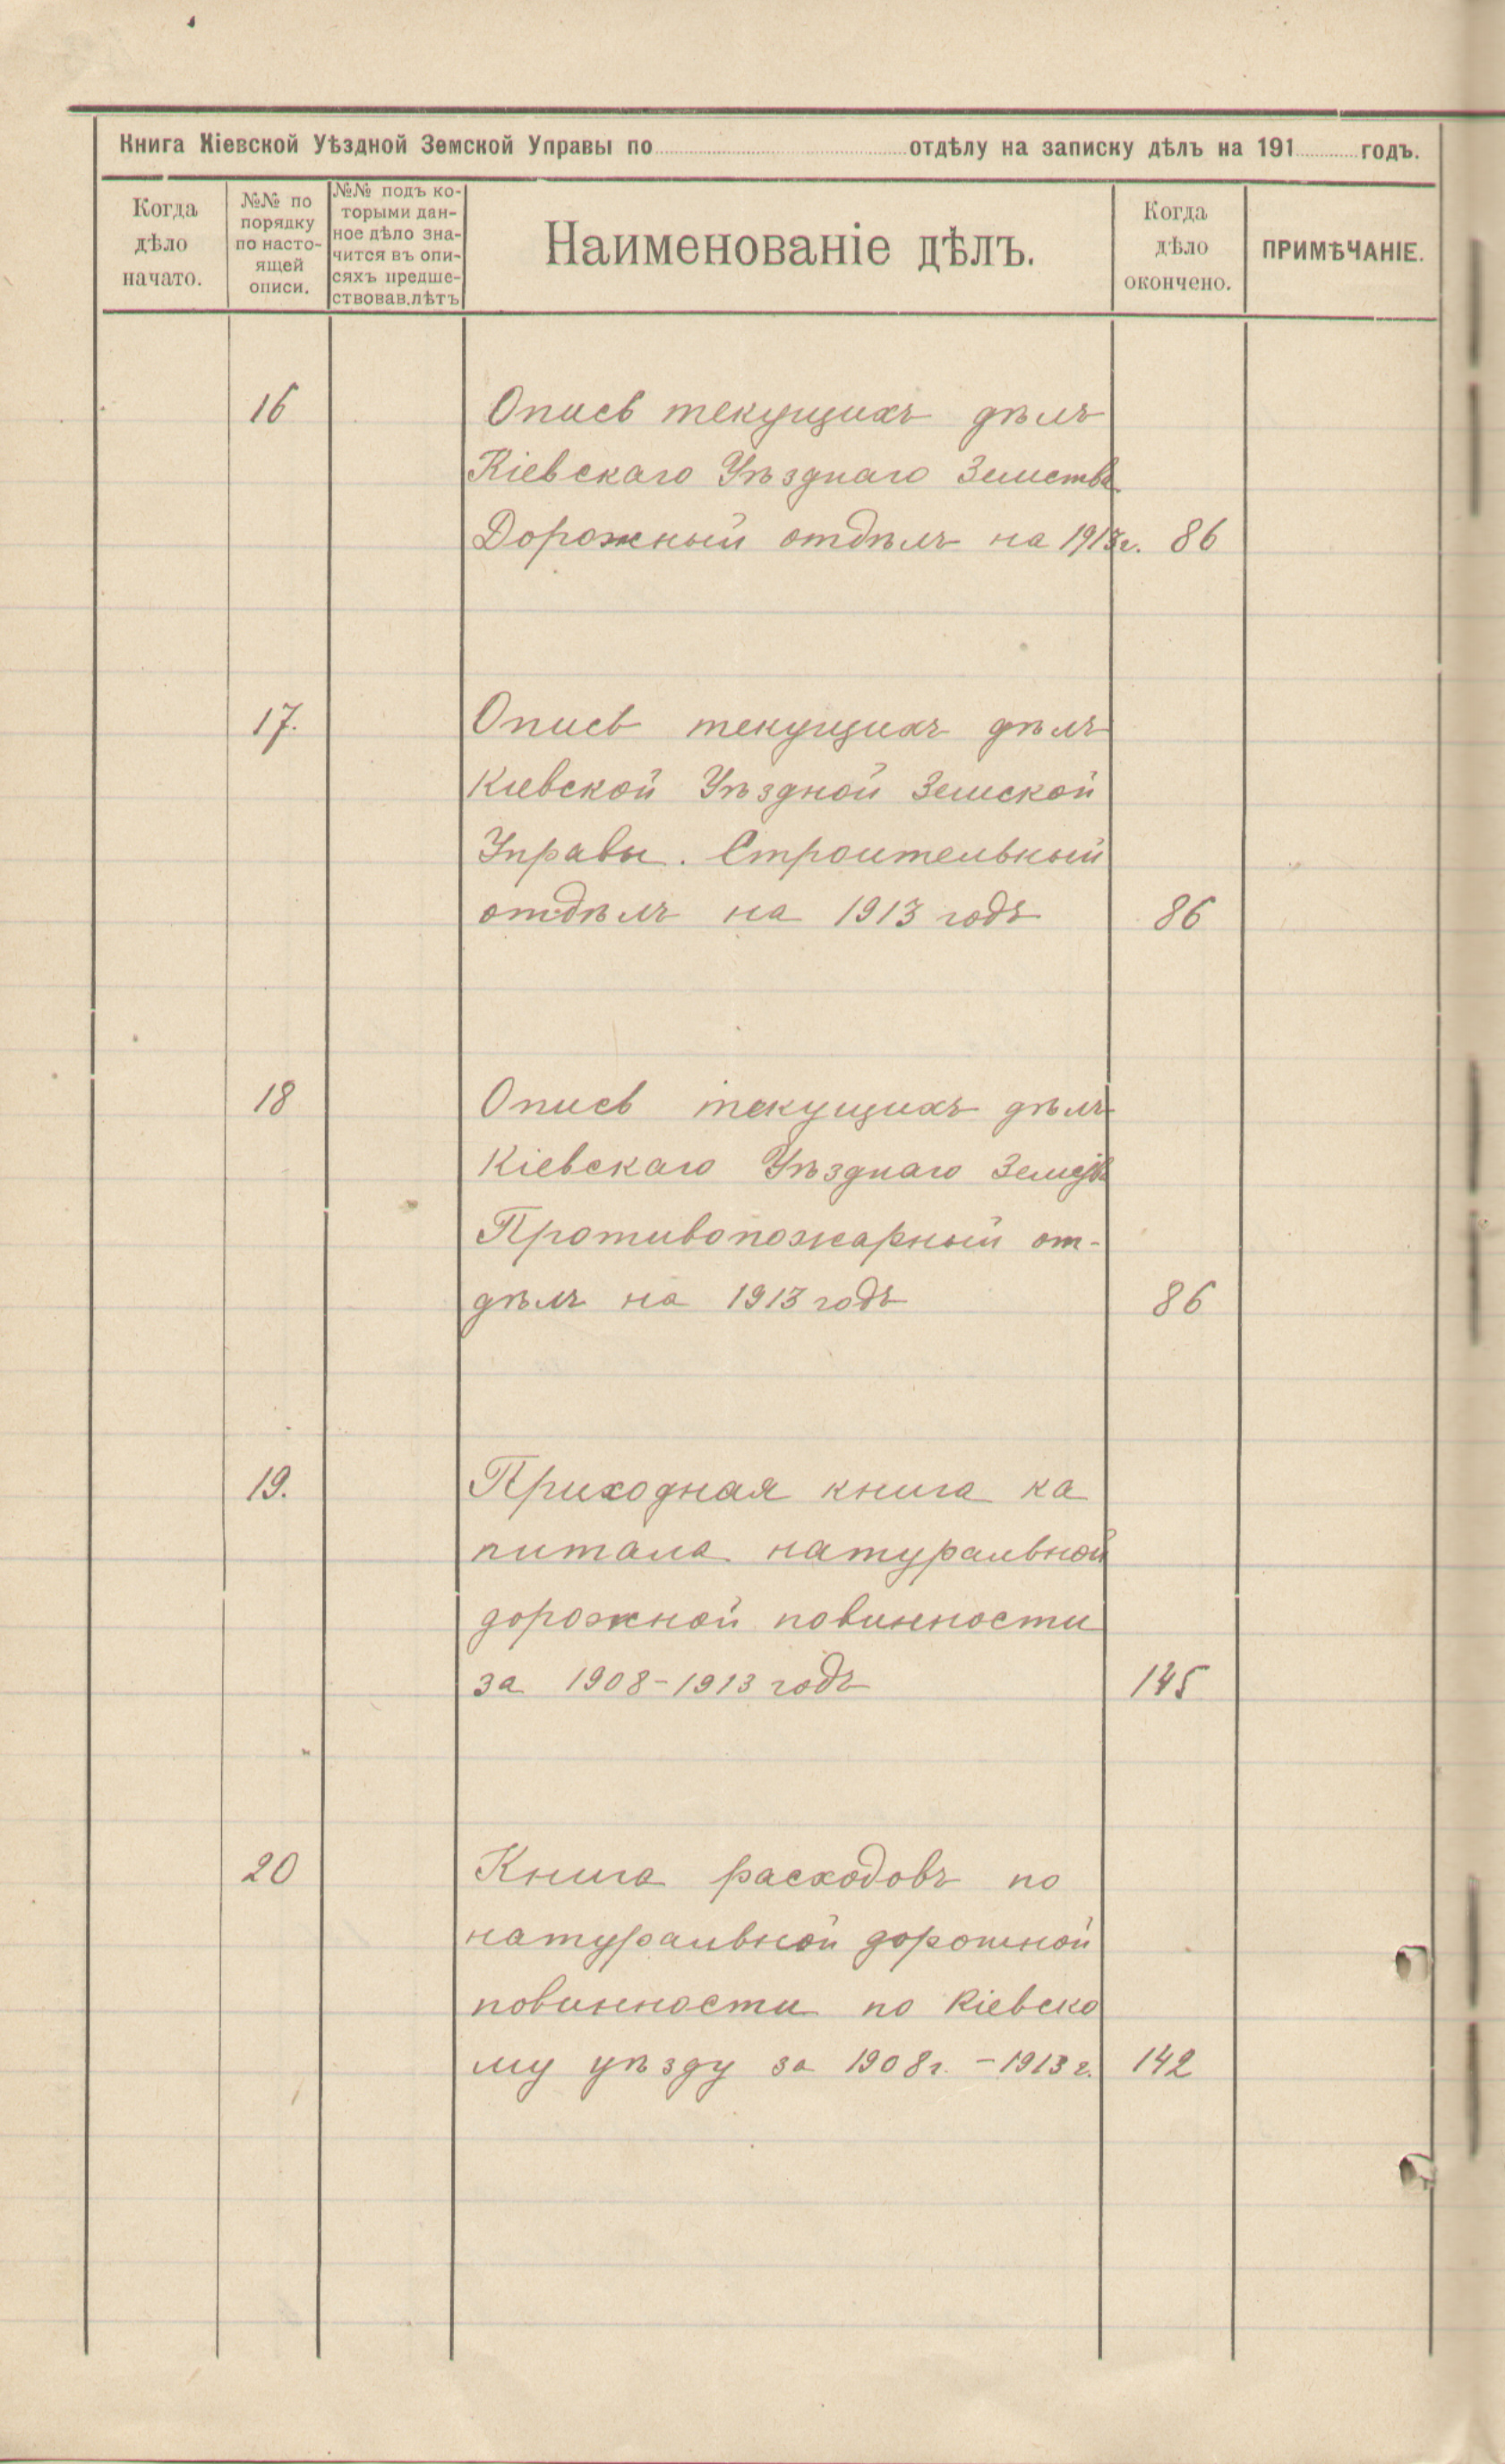 Книга Кіевской Уѣздной Земской Управы по отдѣлу на записку дѣлъ на 191 годъ.
Когда
дѣло
начато.
№№ по
порядку
по насто-
ящей
описи.
№№ подъ ко-
торыми дан-
ное дѣло зна-
чится въ опи-
сяхъ предше-
ствовав.лѣтъ
Наименованіе дѣлъ.
Когда
дѣло
окончено.
ПРИМѢЧАНІЕ.
16 Опись текущихъ дѣлъ
Кіевскаго Уѣзднаго Земства
Дорожный отдѣлъ на 1913г. 86
17. Опись текущихъ дѣлъ
Кіевской Уѣздной Земской
Управы. Строительный
отдѣлъ на 1913 годъ 86
18 Опись текущихъ дѣлъ
Кіевскаго Уѣзднаго Земства
Противопожарный от-
дѣлъ на 1913 годъ 86
19. Приходная книга ка
питала натуральной
дорожной повинности
за 1908-1913 годъ 145
20 Книга расходовъ по
натуральной дорожной
повинности по Кіевско
му уѣзду за 1908г. -1913 г. 142